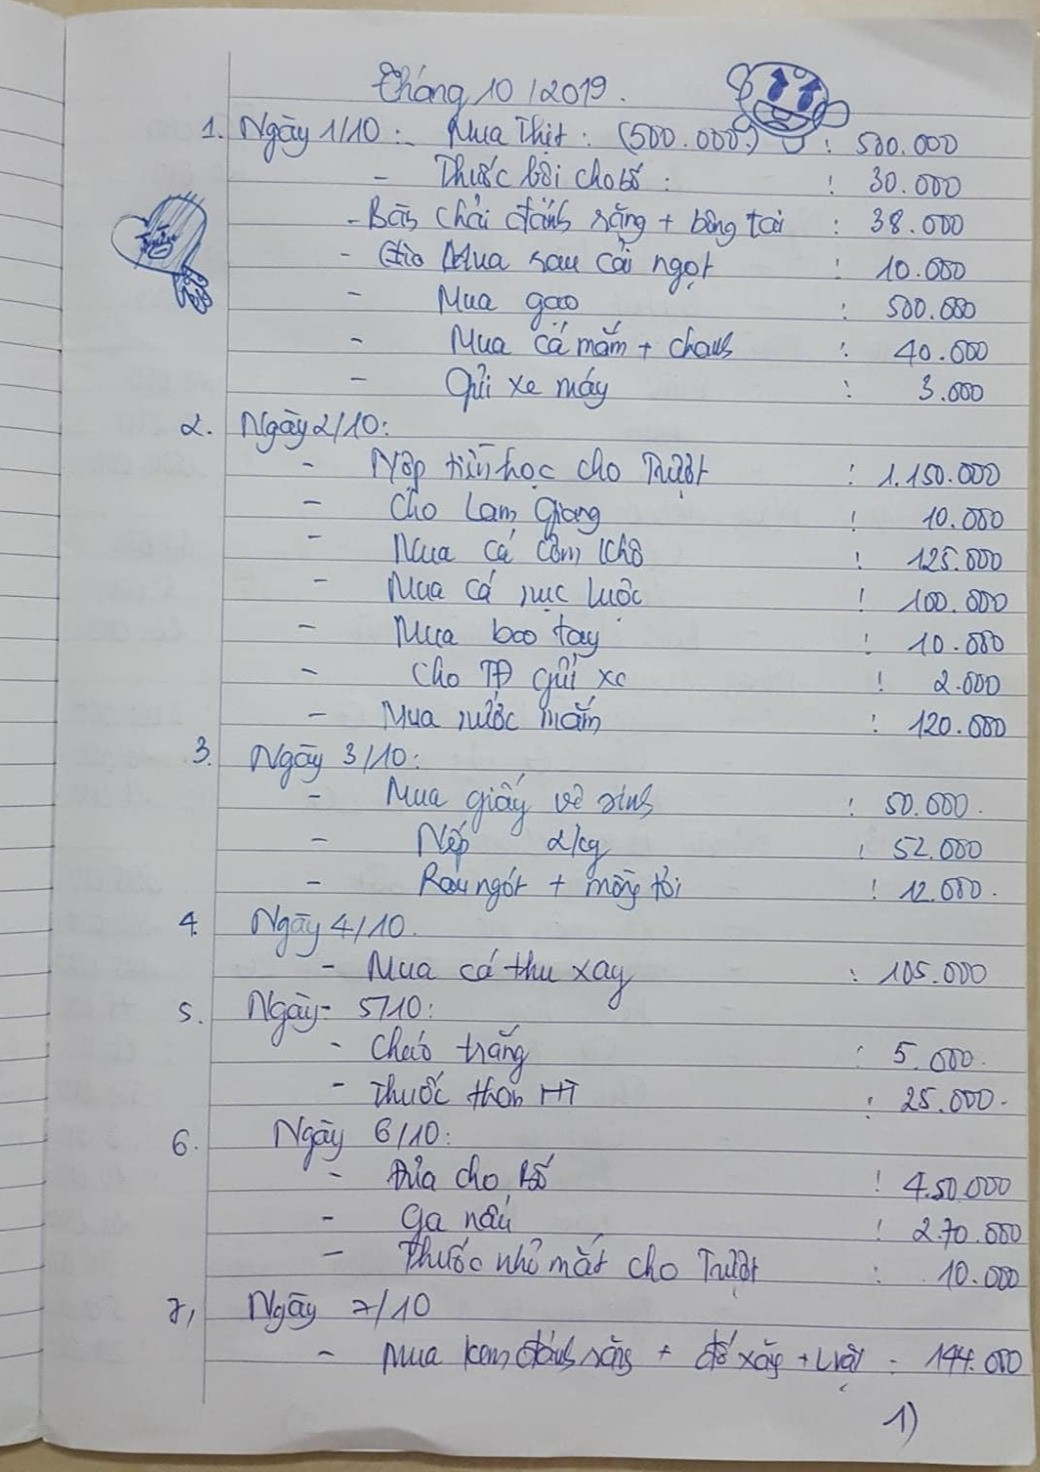 Tháng 10/2019.
1. Ngày 1/10: Mua Thịt: (500.000đ) : 500.000
- Thuốc bôi cho bố : 30.000
- Bàn chải đánh răng + bông tai : 38.000
- Mua rau cải ngọt : 10.000
- Mua gạo : 500.000
- Mua cá mắm + chanh : 40.000
- Gửi xe máy : 3.000
2. Ngày 2/10:
- Nộp tiền học cho : 1.150.000
- Cho Lam Giang : 10.000
- Mua cá cơm khô : 125.000
- Mua cá nục luộc : 100.000
- Mua bao tay : 10.000
- Cho TĐ gửi xe : 2.000
- Mua nước mắm : 120.000
3. Ngày 3/10:
- Mua giấy vệ sinh : 50.000.
- Nếp 2kg : 52.000
- Rau ngót + mồng tơi : 12.000.
4. Ngày 4/10.
- Mua cá thu xay : 105.000
5. Ngày 5/10:
- Cháo trắng : 5.000.
- Thuốc HT : 25.000.
6. Ngày 6/10:
- Đưa cho bố : 450.000
- Ga nấu : 270.000
- Thuốc nhỏ mắt cho : 10.000
7, Ngày 7/10
- Mua kem đánh răng + + : 144.000
1)